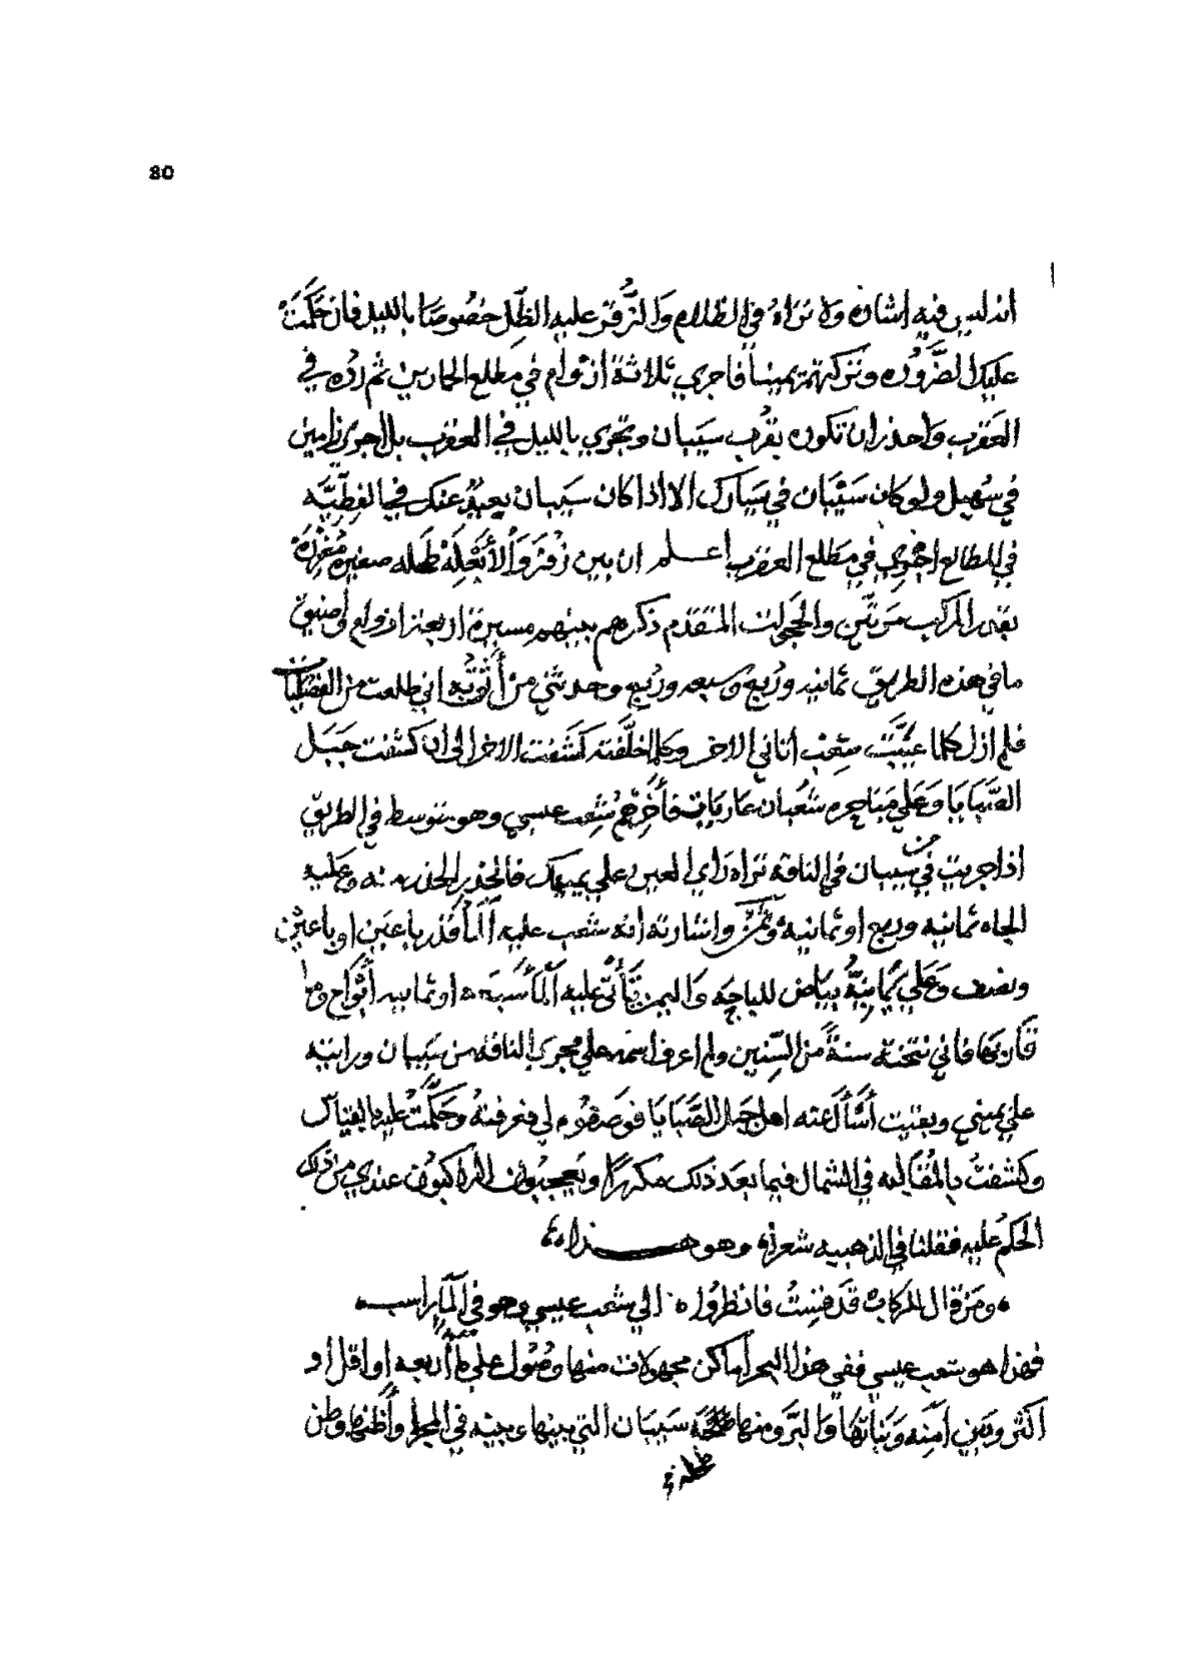 80
انه ليس فيه اشاره ولا تراه في الظلام والزقر عليه الظل خصوصا بالليل فان حكمت
عليك الضروره وتركته يمينا فاجري ثلاثة ازوام في مطلع الحمارين ثم رده في
العقرب واحذر ان تكون بقرب سيبان وتجري بالليل في العقرب بل اجري زامين
في سهيل ولو كان سيبان في يسارك الا اذا كان سيبان بعيد عنك في
في المطالع اجري في مطلع العقرب اعلم ان بين زقر والابعله طحله صغيره مغزره
المركب مرتين والحجولت المتقدم ذكرهم بينهم مسيرة اربعة ازوام اوضيق
ما في هذه الطريق ثمانيه وربع وسبعه وربع وحدثني من أثق به اني طلعت من
فلم ازل كلما غيبت شعب أتاني الاخر وكلما خلفته كشفت الاخر الى ان كشفت جبل
الصبايا وعلي شعبان عاريات فأخرهم شعب عيسي وهو متوسط في الطريق
اذا جريت من سيبان في الناقة تراه راي العين علي يمينك فالحذر الحذر منه وعليه
الجاه ثمانيه وربع او ثمانيه وثمن واشارته انه شعب عليه الماء قدر باعين او باعين
ونصف وعلي يمانيه بياض للباحه واليمن يأتي عليه الماء سبعه او ثمانيه أبواع وما
قاربها فاني نتخته سنة من السنين ولم اعرف اسمه علي مجرى الناقه من سيبان ورايته
علي يميني وبقيت أسأل عنه اهل جبل الصبايا فوصفوه لي فعرفته وحكمت عليه بالقياس
وكشفت بالمقابله في الشمال فيما بعد ذلك مكررا وتعجبون الراكبون عندي من ذلك
الحكم عليه فقلنا في الذهبيه شعرا وهو هذا
ومن قال المركاب قد فنيت فانظروا الي شعب عيسي وهو في الماء راسب
فهذا هو شعب عيسي ففي هذا البحر أماكن مجهولات منها وصول علي ماء أربعه او اقل او
اكثر وبين امنه ونباتها والبر ومنها طحلة سيبان التي بينها وبينه في المجرا وأظنها وطن